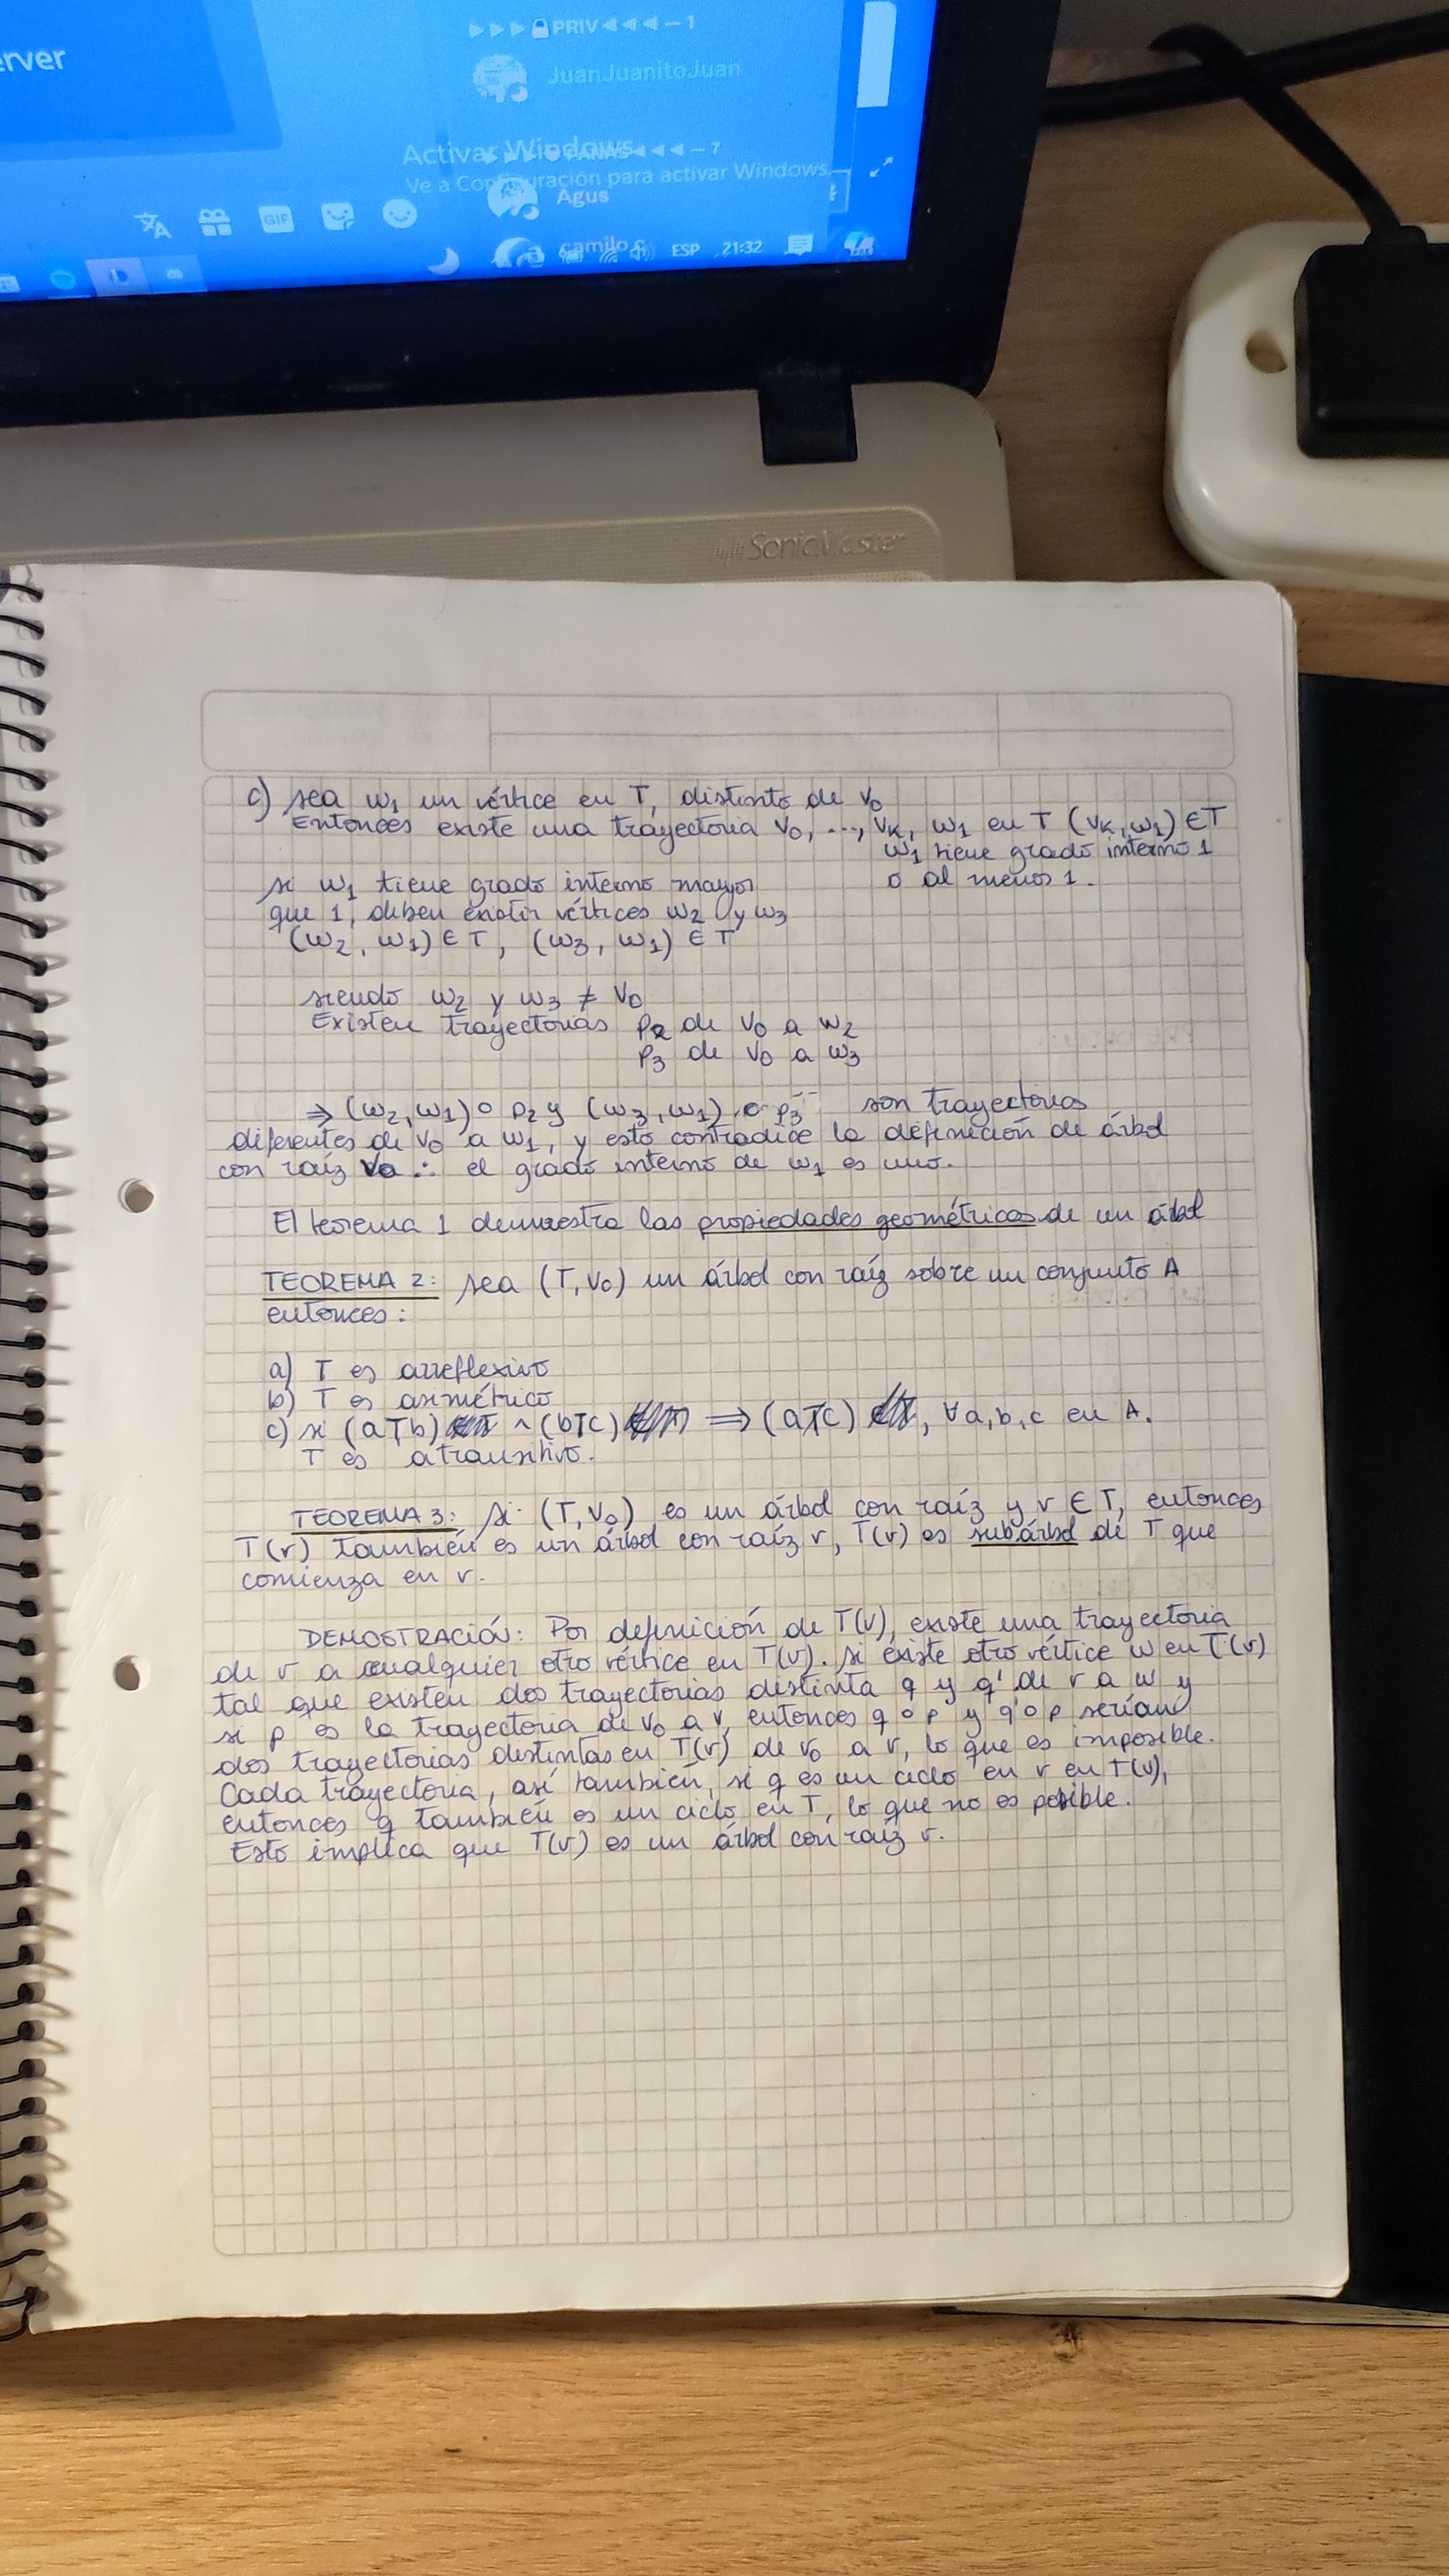 erver
▶ ▶ ▶ PRIV ◀ ◀ ◀ — 1
JuanJuanitoJuan
Activar Windows
◀ ◀ ◀ — 7
Ve a Configuración para activar Windows.
Agus
GIF
camilo c
ESP 21:32
SonicMaster
c) sea w₁ un vértice en T, distinto de v₀
Entonces existe una trayectoria v₀, ..., vₖ, w₁ en T (vₖ, w₁) ∈ T
w₁ tiene grado interno 1
o al menos 1.
si w₁ tiene grado interno mayor
que 1, deben existir vértices w₂ y w₃
(w₂, w₁) ∈ T, (w₃, w₁) ∈ T
siendo w₂ y w₃ ≠ v₀
Existen trayectorias p₂ de v₀ a w₂
p₃ de v₀ a w₃
⇒ (w₂, w₁) ∘ p₂ y (w₃, w₁) ∘ p₃ son trayectorias
diferentes de v₀ a w₁, y esto contradice la definición de árbol
con raíz v₀ ∴ el grado interno de w₁ es uno.
El teorema 1 demuestra las propiedades geométricas de un árbol
TEOREMA 2: sea (T, v₀) un árbol con raíz sobre un conjunto A
entonces:
a) T es arreflexivo
b) T es asimétrico
c) si (aTb) ^ (bTc) ⇒ (aT̸c) , ∀a,b,c en A.
T es atransitivo.
TEOREMA 3: Si (T, v₀) es un árbol con raíz y v ∈ T, entonces
T(v) también es un árbol con raíz v, T(v) es subárbol de T que
comienza en v.
DEMOSTRACIÓN: Por definición de T(v), existe una trayectoria
de v a cualquier otro vértice en T(v). Si existe otro vértice w en T(v)
tal que existen dos trayectorias distinta q y q' de v a w y
si p es la trayectoria de v₀ a v, entonces q ∘ p y q' ∘ p serían
dos trayectorias distintas en T(v) de v₀ a v, lo que es imposible.
Cada trayectoria, así también, si q es un ciclo en v en T(v),
entonces q también es un ciclo en T, lo que no es posible.
Esto implica que T(v) es un árbol con raíz v.